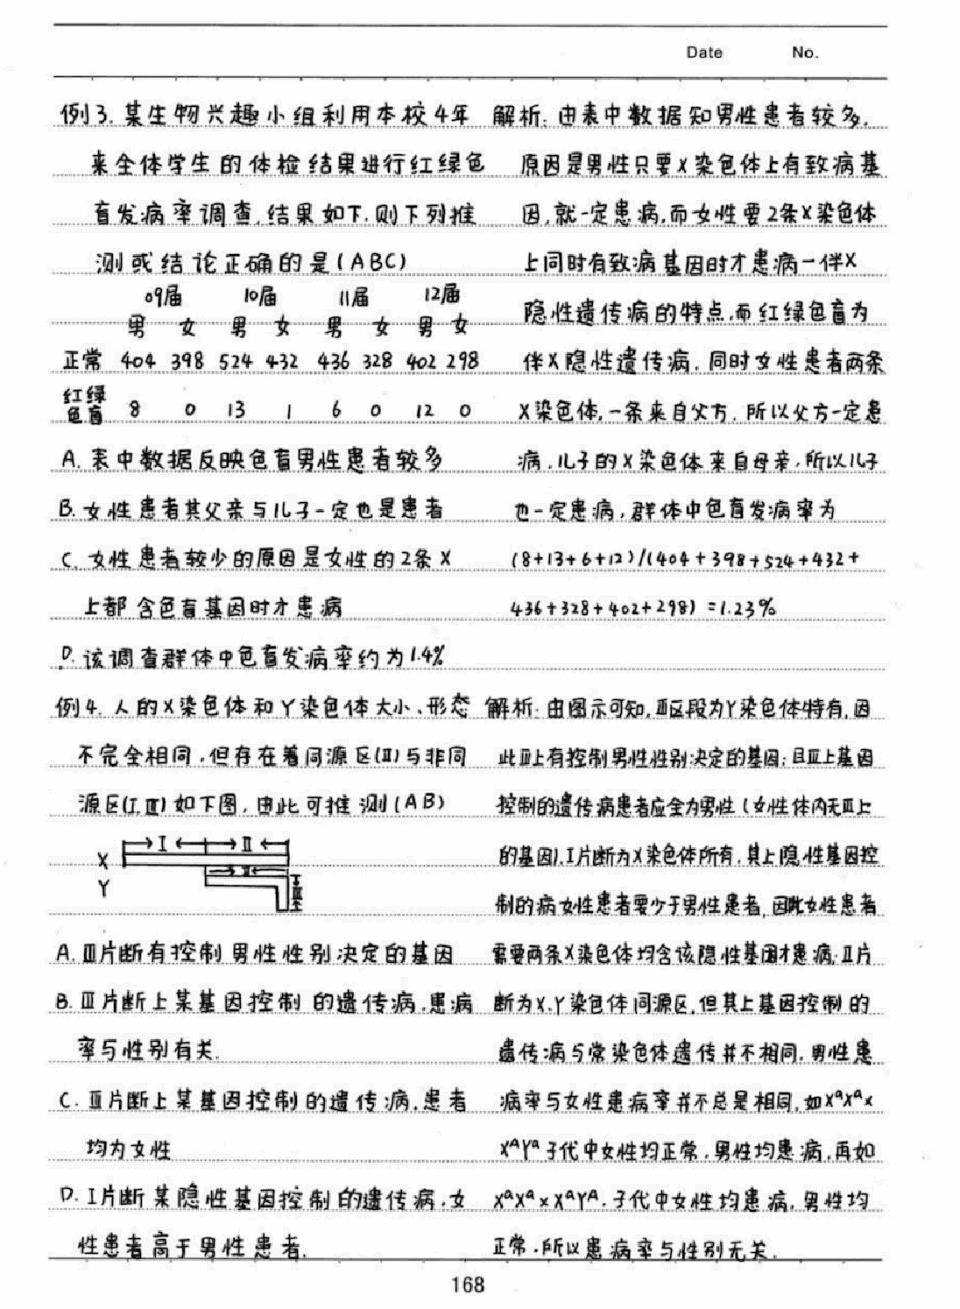 Date No.
例3.某生物兴趣小组利用本校4年
来全体学生的体检结果进行红绿色
盲发病率调查,结果如下.则下列推
测或结论正确的是(ABC)
09届 10届 11届 12届
男 女 男 女 男 女 男 女
正常 404 398 524 432 436 328 402 298
红绿
色盲 8 0 13 1 6 0 12 0
A.表中数据反映色盲男性患者较多
B.女性患者其父亲与儿子一定也是患者
C.女性患者较少的原因是女性的2条X
上都含色盲基因时才患病
D.该调查群体中色盲发病率约为1.4%
例4.人的X染色体和Y染色体大小、形态
不完全相同.但存在着同源区(Ⅱ)与非同
源区(Ⅰ,Ⅲ)如下图.由此可推测(AB)
Ⅰ Ⅱ
X
Y
Ⅱ
Ⅲ
A.Ⅲ片断有控制男性性别决定的基因
B.Ⅲ片断上某基因控制的遗传病.患病
率与性别有关.
C.Ⅲ片断上某基因控制的遗传病,患者
均为女性
D.Ⅰ片断某隐性基因控制的遗传病.女
性患者高于男性患者.
解析:由表中数据知男性患者较多.
原因是男性只要X染色体上有致病基
因,就一定患病,而女性要2条X染色体
上同时有致病基因时才患病—伴X
隐性遗传病的特点.而红绿色盲为
伴X隐性遗传病.同时女性患者两条
X染色体,一条来自父方.所以父方一定患
病.儿子的X染色体来自母亲.所以儿子
也一定患病,群体中色盲发病率为
(8+13+6+12)/(404+398+524+432+
436+328+402+298)=1.23%
解析:由图示可知,Ⅲ区段为Y染色体特有,因
此Ⅲ上有控制男性性别决定的基因;且Ⅲ上基因
控制的遗传病患者应全为男性(女性体内无Ⅲ上
的基因),Ⅰ片断为X染色体所有.其上隐性基因控
制的病女性患者要少于男性患者,因此女性患者
需要两条X染色体均含该隐性基因才患病;Ⅱ片
断为X.Y染色体同源区,但其上基因控制的
遗传病与常染色体遗传并不相同.男性患
病率与女性患病率并不总是相同,如XᵃXᵃ×
XᴬYᵃ子代中女性均正常.男性均患病.再如
XᵃXᵃ×XᵃYᴬ.子代中女性均患病,男性均
正常.所以患病率与性别无关.
168